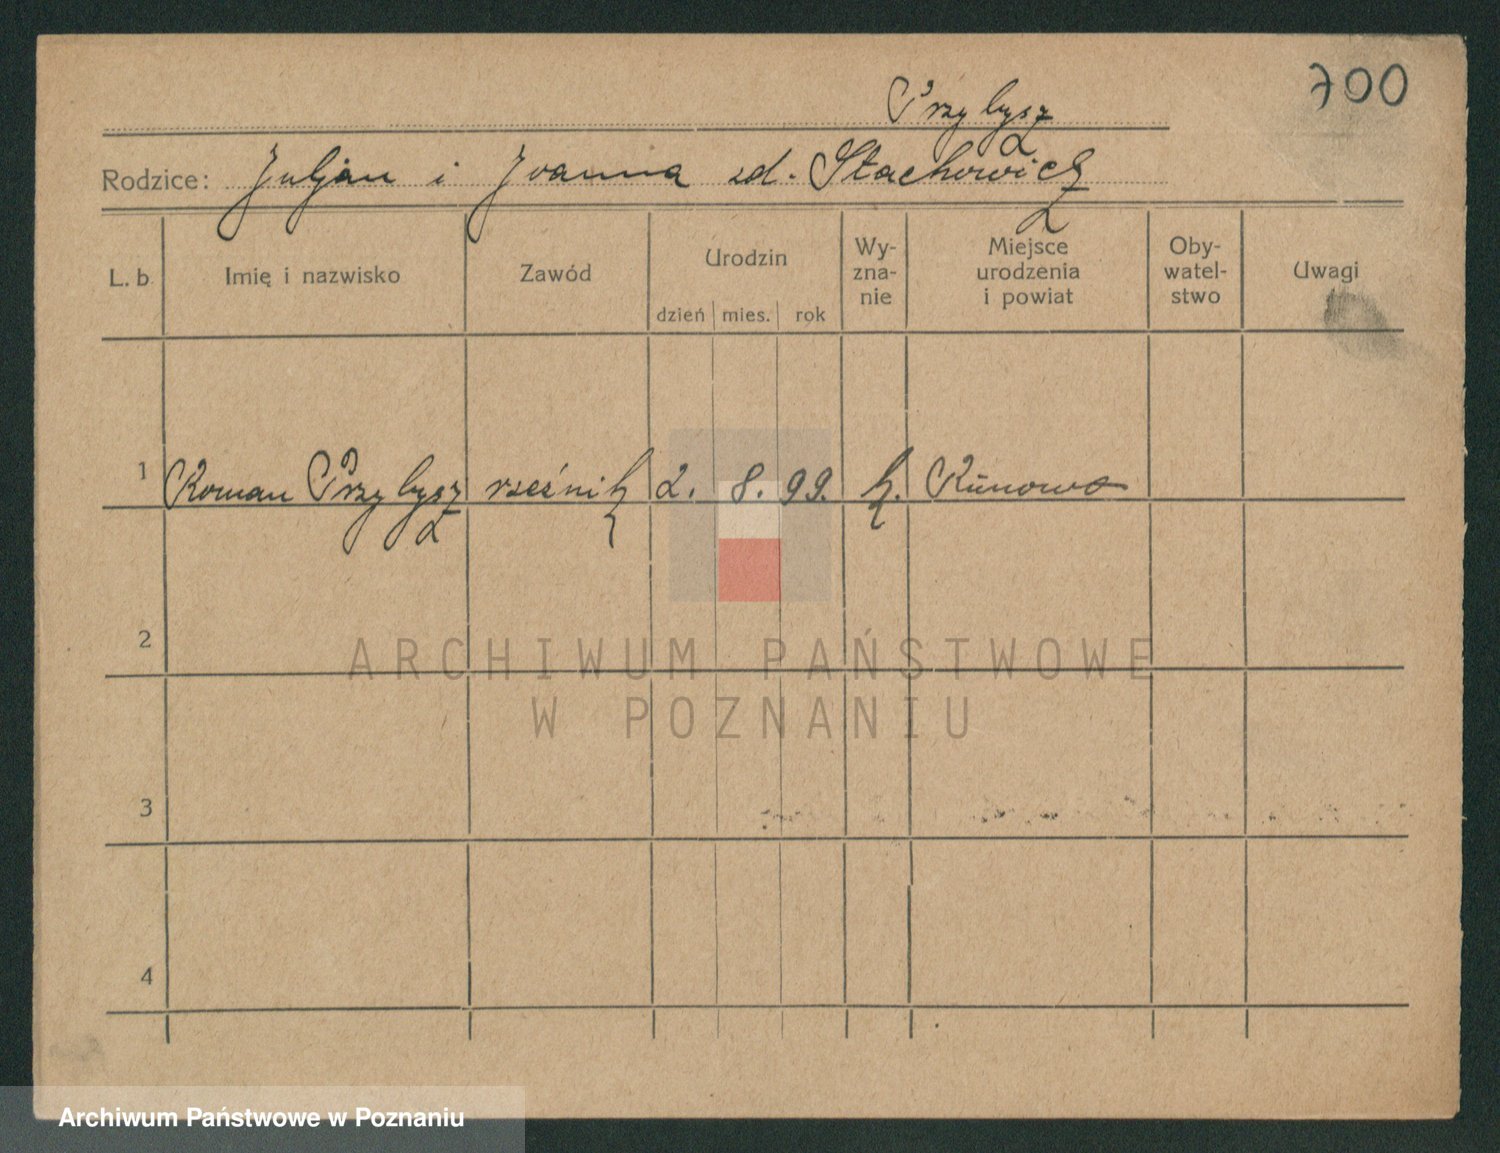 700
Przybysz
Rodzice: Juljan i Joanna zd. Stachowicz
L. b. Imię i nazwisko Zawód Urodzin dzień mies. rok Wy-zna-nie Miejsce urodzenia i powiat Oby-watel-stwo Uwagi
1 Roman Przybysz rzeźnik 2. 8. 99. k. Kunowo
2
ARCHIWUM PAŃSTWOWE
W POZNANIU
3
4
Archiwum Państwowe w Poznaniu